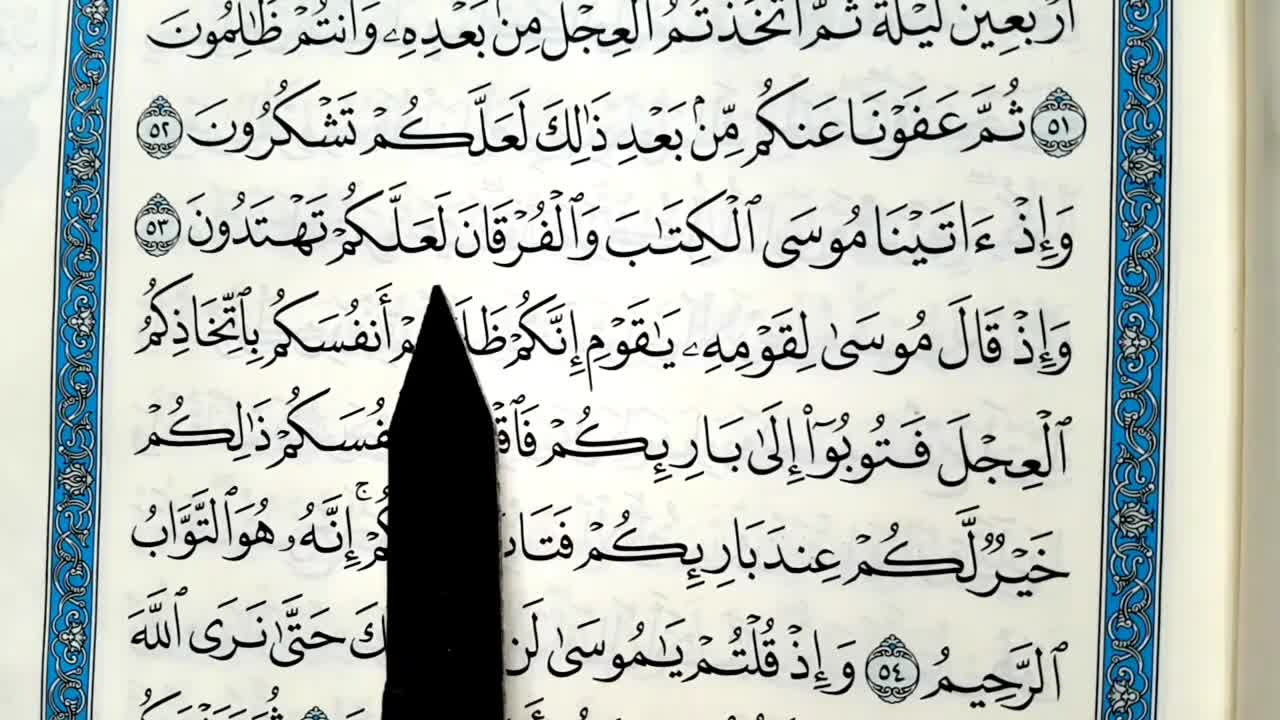 أَرْبَعِينَ لَيْلَةً ثُمَّ ٱتَّخَذْتُمُ ٱلْعِجْلَ مِنۢ بَعْدِهِۦ وَأَنتُمْ ظَٰلِمُونَ
٥١ ثُمَّ عَفَوْنَا عَنكُم مِّنۢ بَعْدِ ذَٰلِكَ لَعَلَّكُمْ تَشْكُرُونَ ٥٢
وَإِذْ ءَاتَيْنَا مُوسَى ٱلْكِتَٰبَ وَٱلْفُرْقَانَ لَعَلَّكُمْ تَهْتَدُونَ ٥٣
وَإِذْ قَالَ مُوسَىٰ لِقَوْمِهِۦ يَٰقَوْمِ إِنَّكُمْ أَنفُسَكُم بِٱتِّخَاذِكُمُ
ٱلْعِجْلَ فَتُوبُوٓا۟ إِلَىٰ بَارِئِكُمْ ذَٰلِكُمْ
خَيْرٌ لَّكُمْ عِندَ بَارِئِكُمْ إِنَّهُۥ هُوَ ٱلتَّوَّابُ
ٱلرَّحِيمُ ٥٤ وَإِذْ قُلْتُمْ يَٰمُوسَىٰ لَن حَتَّىٰ نَرَى ٱللَّهَ